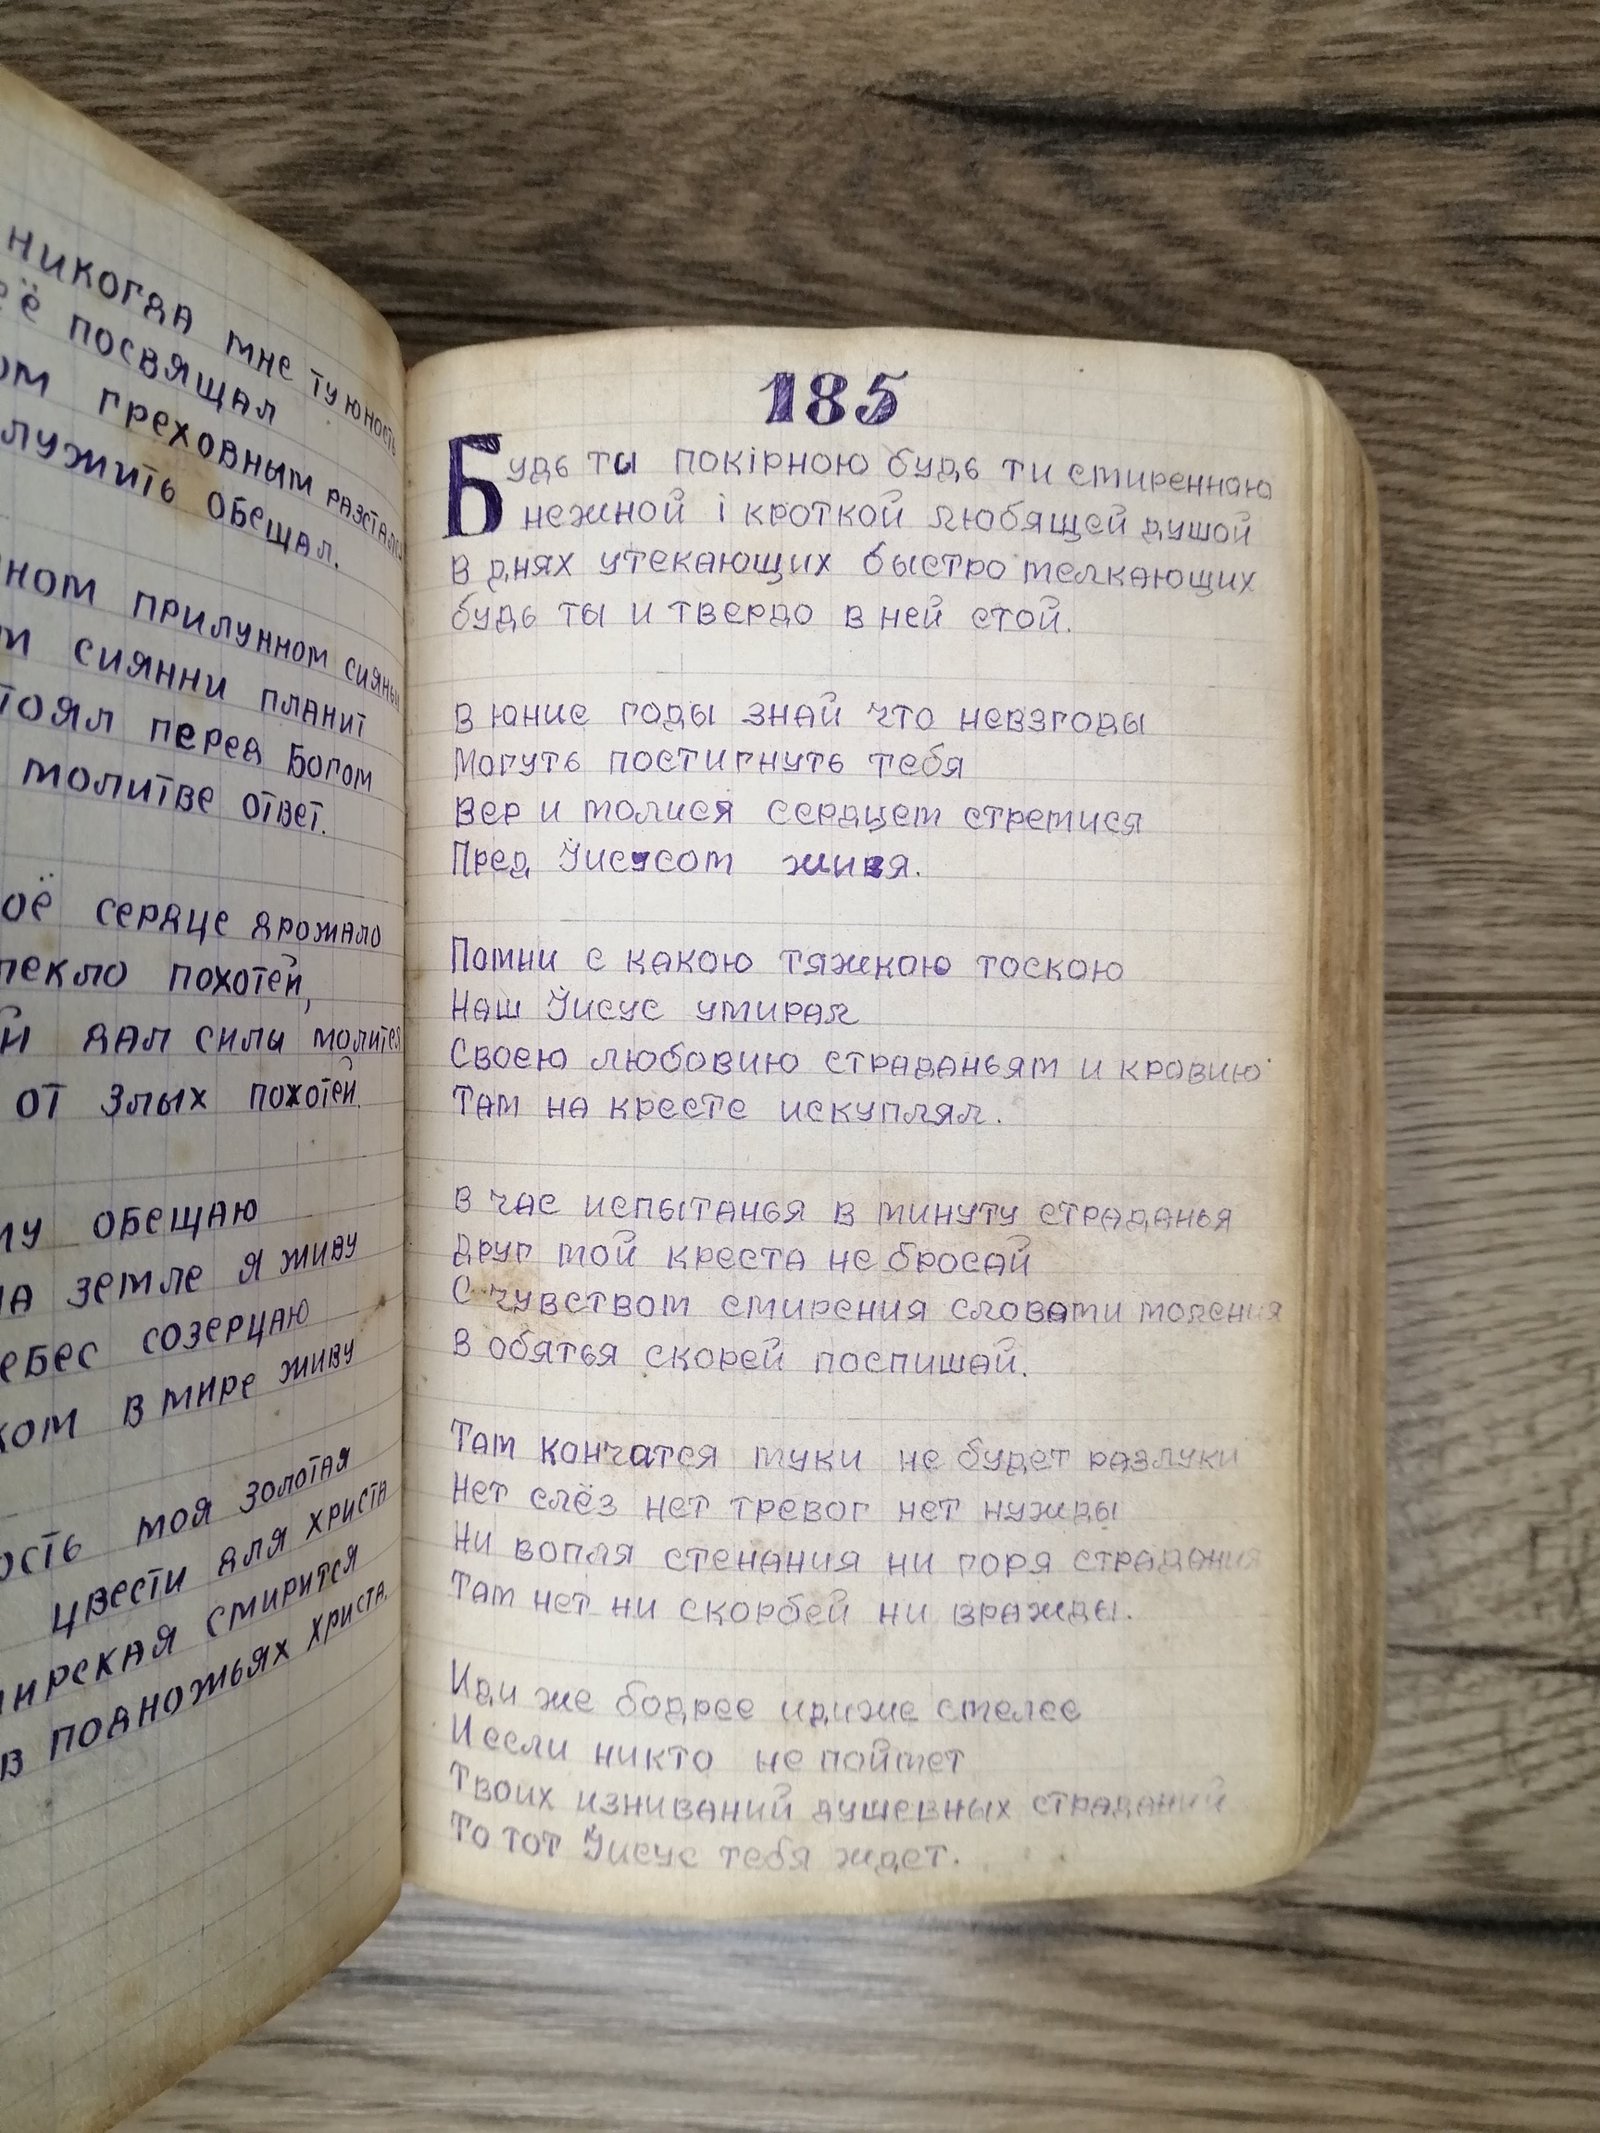 никогда мне ту юность
её посвящал
греховным разстался
служить обещал.
прилунном сиянье
сиянни планит
стоял перед Богом
молитве ответ.
моё сердце дрожало
пекло похотей,
дал силы молится
от злых похотей.
обещаю
на земле я живу
небес созерцаю
в мире живу
моя золотая
цвести для христа
смирится
в подножьях христа.
185
Будь ты покірною будь ти смиренною
нежной і кроткой любящей душой
в днях утекающих быстро мелкающих
будь ты и твердо в ней стой.
В юние годы знай что невзгоды
Могуть постигнуть тебя
Вер и молися сердцем стремися
Пред Їисусом живя.
Помни с какою тяжкою тоскою
Наш Їисус умирал
Своею любовию страданьям и кровию
Там на кресте искуплял.
В час испытанья в минуту страданья
Друг мой креста не бросай
С чувством смирения словами моления
В обятья скорей поспишай.
Там кончатся муки не будет разлуки
Нет слёз нет тревог нет нужды
Ни вопля стенания ни горя страдания
Там нет ни скорбей ни вражды.
Иди же бодрее иди же смелее
И если никто не поймет
Твоих изниваний душевных страданий
То тот Їисус тебя ждет.